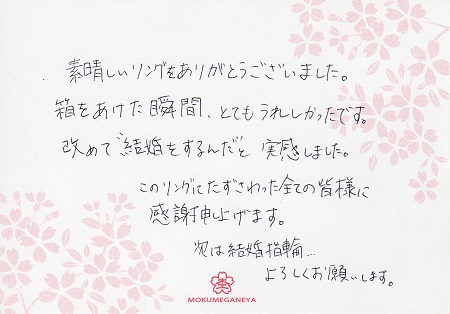 素晴しいリングをありがとうございました。
箱をあけた瞬間、とてもうれしかったです。
改めて"結婚をするんだ"と実感しました。
このリングにたずさわった全ての皆様に
感謝申上げます。
次は結婚指輪…
よろしくお願いします。
MOKUMEGANEYA